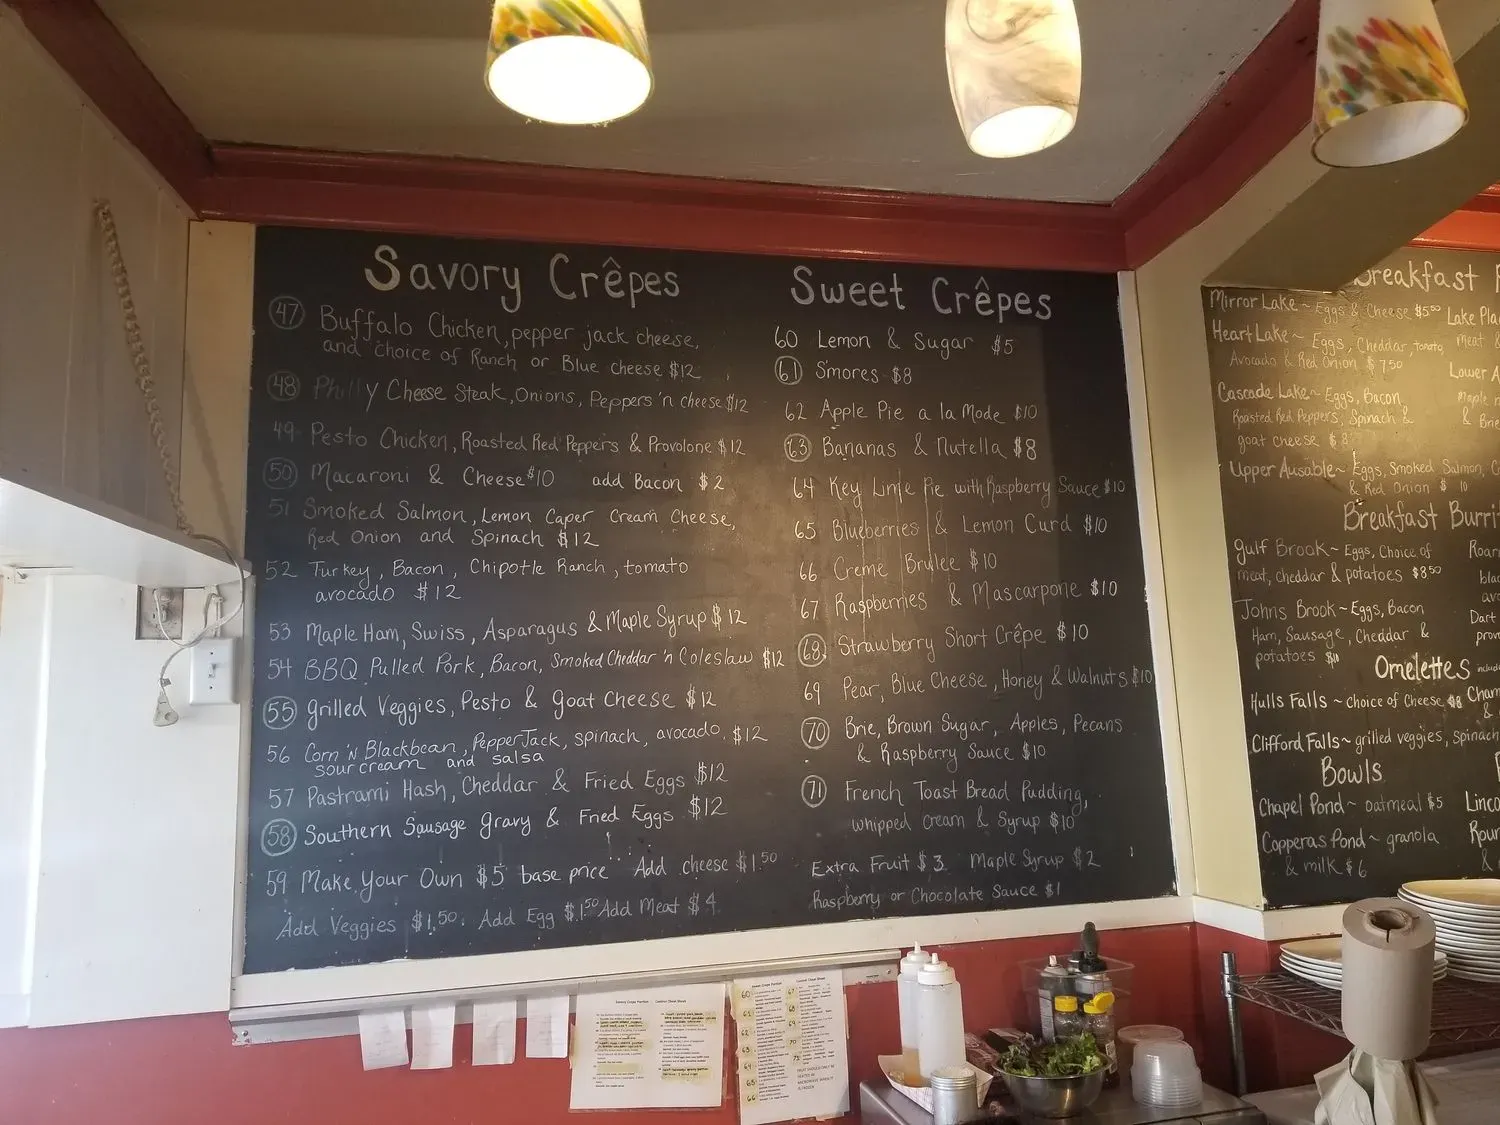 Savory Crêpes
47 Buffalo Chicken, pepper jack cheese,
and choice of Ranch or Blue cheese $12
48 Philly Cheese Steak, Onions, Peppers 'n cheese $12
49 Pesto Chicken, Roasted Red Peppers & Provolone $12
50 Macaroni & Cheese $10 add Bacon $2
51 Smoked Salmon, Lemon Caper Cream Cheese,
Red Onion and Spinach $12
52 Turkey, Bacon, Chipotle Ranch, tomato
avocado $12
53 Maple Ham, Swiss, Asparagus & Maple Syrup $12
54 BBQ Pulled Pork, Bacon, Smoked Cheddar 'n Coleslaw $12
55 grilled Veggies, Pesto & Goat Cheese $12
56 Corn 'n Blackbean, Pepper Jack, spinach, avocado, $12
sour cream and salsa
57 Pastrami Hash, Cheddar & Fried Eggs $12
58 Southern Sausage gravy & Fried Eggs $12
59 Make Your Own $5 base price Add cheese $1.50
Add Veggies $1.50. Add Egg $1.50 Add Meat $4
Sweet Crêpes
60 Lemon & Sugar $5
61 S'mores $8
62 Apple Pie a la Mode $10
63 Bananas & Nutella $8
64 Key Lime Pie with Raspberry Sauce $10
65 Blueberries & Lemon Curd $10
66 Creme Brulee $10
67 Raspberries & Mascarpone $10
68 Strawberry Short Crêpe $10
69 Pear, Blue Cheese, Honey & Walnuts $10
70 Brie, Brown Sugar, Apples, Pecans
& Raspberry Sauce $10
71 French Toast Bread Pudding,
whipped cream & Syrup $10
Extra Fruit $3 Maple Syrup $2
Raspberry or Chocolate Sauce $1
Breakfast
Mirror Lake ~ Eggs & Cheese $5.50
Heart Lake ~ Eggs, Cheddar, tomato,
Avocado & Red Onion $7.50
Cascade Lake ~ Eggs, Bacon
Roasted Red Peppers, Spinach &
goat cheese $8
Upper Ausable ~ Eggs, Smoked Salmon,
& Red Onion $10
Lake
meat
Lower
Maple
&
Breakfast
Gulf Brook ~ Eggs, Choice of
meat, cheddar & potatoes $8.50
Johns Brook ~ Eggs, Bacon
Ham, Sausage, Cheddar &
potatoes $11
Dart
Omelettes
Hulls Falls ~ choice of Cheese $8
Clifford Falls ~ grilled veggies, spinach
Bowls
Chapel Pond ~ oatmeal $5
Copperas Pond ~ granola
& milk $6
&